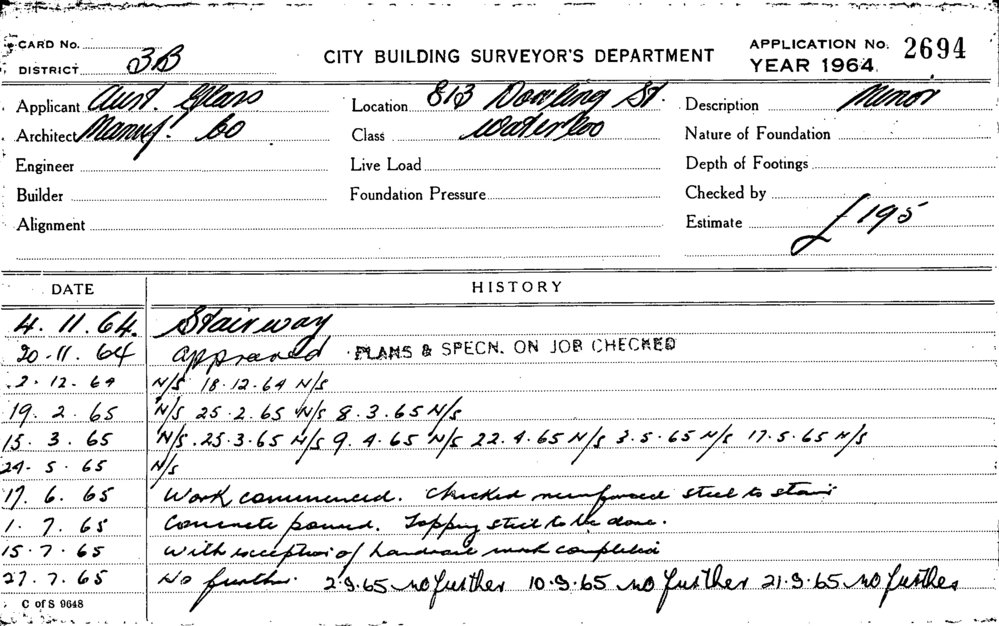 CARD No.
DISTRICT 3B
CITY BUILDING SURVEYOR'S DEPARTMENT
APPLICATION No. 2694
YEAR 1964
Applicant Aust. Glass
Location 813 Dowling St.
Description Minor
Architect Manuf. Co
Class Waterloo
Nature of Foundation
Engineer
Live Load
Depth of Footings
Builder
Foundation Pressure
Checked by
Alignment
Estimate £195
DATE HISTORY
4.11.64. Stairway
20.11.64 Approved PLANS & SPECN. ON JOB CHECKED
2.12.64 N/S 18.12.64 N/S
19.2.65 N/S 25.2.65 N/S 8.3.65 N/S
15.3.65 N/S. 25.3.65 N/S 9.4.65 N/S 22.4.65 N/S 3.5.65 N/S 17.5.65 N/S
24.5.65 N/S
17.6.65 Work commenced. Checked reinforced steel to stairs
1.7.65 Concrete poured. Topping still to be done.
15.7.65 With exception of handrail work completed
27.7.65 No further. 2.9.65 no further 10.9.65 no further 21.9.65 no further
C of S 9648